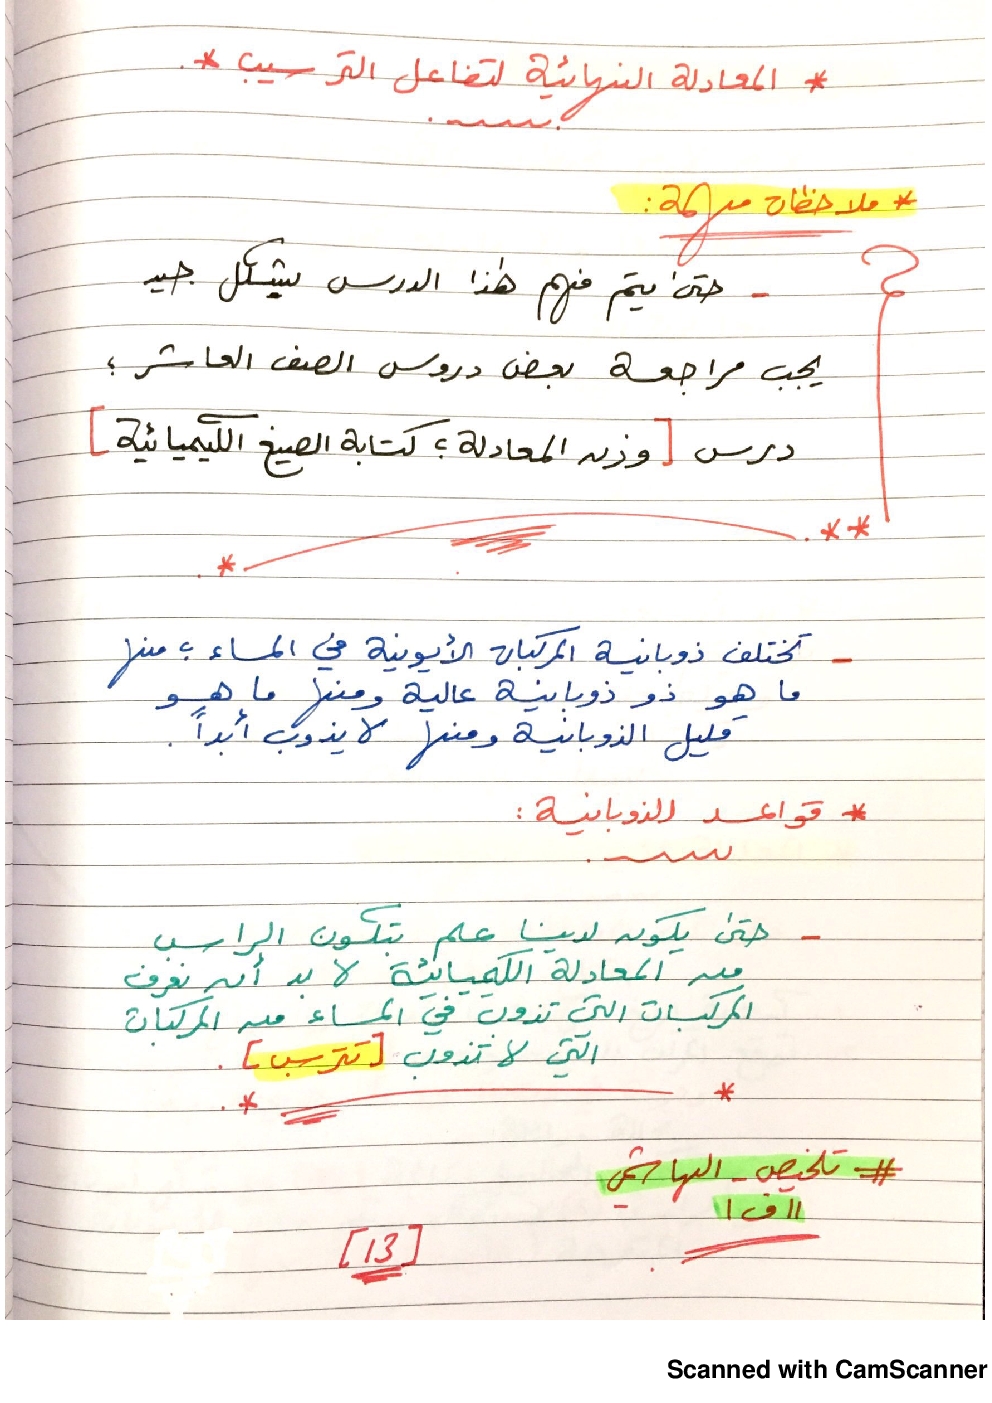 * المعادلة النهائية لتفاعل الترسيب *
* ملاحظات مهمة:
- حتى يتم فهم هذا الدرس بشكل جيد
يجب مراجعة بعض دروس الصف العاشر ؛
درس [وزن المعادلة ؛ كتابة الصيغ الكيميائية]
- تختلف ذوبانية المركبات الأيونية في الماء ؛ منها
ما هو ذو ذوبانية عالية ومنها ما هو
قليل الذوبانية ومنها لا يذوب أبداً .
* قواعد الذوبانية :
- حتى يكون لدينا علم بتكون الراسب
من المعادلة الكيميائية لا بد أن نعرف
المركبات التي تذوب في الماء من المركبات
التي لا تذوب [تترسب] .
# تلخيص - الهاشمي
١١ ف ١
[13]
Scanned with CamScanner